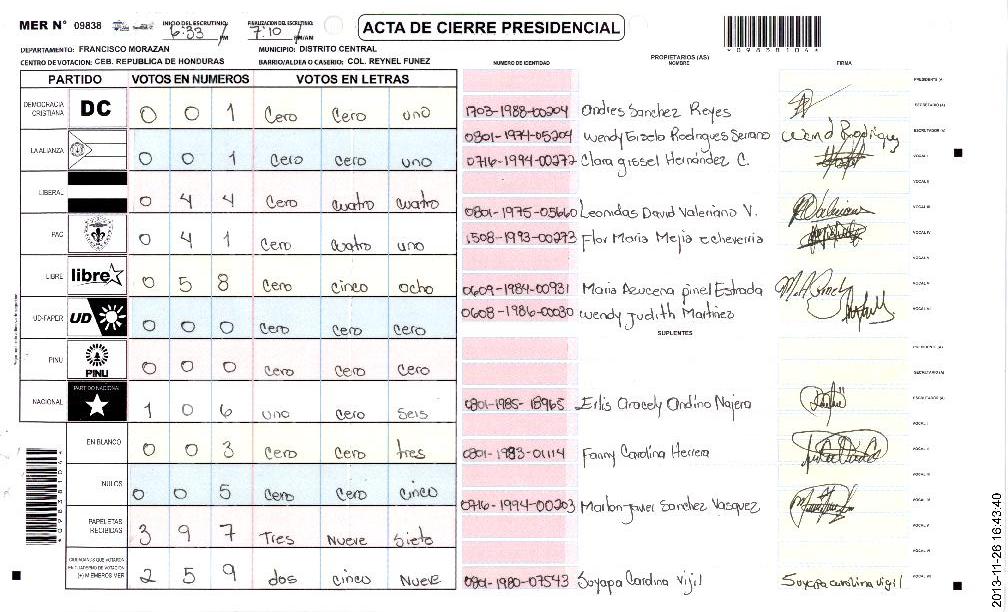 MER N° 09838 INICIO DEL ESCRUTINIO: 6:33 PM FINALIZACION DEL ESCRUTINIO: 7:10 PM/AM ACTA DE CIERRE PRESIDENCIAL
*09838104*
DEPARTAMENTO: FRANCISCO MORAZAN MUNICIPIO: DISTRITO CENTRAL
CENTRO DE VOTACION: CEB. REPUBLICA DE HONDURAS BARRIO/ALDEA O CASERIO: COL. REYNEL FUNEZ
PARTIDO VOTOS EN NUMEROS VOTOS EN LETRAS
DEMOCRACIA CRISTIANA DC 0 0 1 Cero Cero uno
LA ALIANZA 0 0 1 Cero cero uno
LIBERAL 0 4 4 Cero cuatro cuatro
PAC 0 4 1 Cero Cuatro uno
LIBRE libre 0 5 8 Cero cinco ocho
UD-FAPER UD 0 0 0 Cero cero Cero
PINU PINU 0 0 0 cero cero Cero
NACIONAL PARTIDO NACIONAL 1 0 6 uno Cero Seis
EN BLANCO 0 0 3 Cero Cero tres
NULOS 0 0 5 Cero Cero cinco
PAPELETAS RECIBIDAS 3 9 7 Tres Nueve Siete
CIUDADANOS QUE VOTARON EN CUADERNO DE VOTACION (+) MIEMBROS MER 2 5 9 dos cinco Nueve
NUMERO DE IDENTIDAD PROPIETARIOS (AS) NOMBRE FIRMA
PRESIDENTE (A)
1703-1988-00204 Andres Sanchez Reyes SECRETARIO (A)
0801-1974-05204 Wendy Gisela Rodrigues Serrano Wend Rodriguez ESCRUTADOR (A)
0716-1994-00272 Clara gissel Hernández C. VOCAL I
VOCAL II
0801-1975-05660 Leonidas David Valeriano V. VOCAL III
1508-1993-00273 Flor Maria Mejia echeverria VOCAL IV
VOCAL V
0609-1984-00931 Maria Azucena pinel Estrada
0608-1986-00030 wendy Judith Martinez
SUPLENTES
PRESIDENTE (A)
SECRETARIO (A)
0801-1985-18965 Erlis Aracely Andino Najera ESCRUTADOR (A)
VOCAL I
0801-1983-01114 Fanny Carolina Herrera VOCAL II
VOCAL III
0716-1994-00203 Marlon Javier Sanchez Vasquez VOCAL IV
VOCAL V
VOCAL VI
0801-1980-07543 Suyapa Carolina vijil Suyapa carolina vigil
*09838104*
2013-11-26 16:43:40